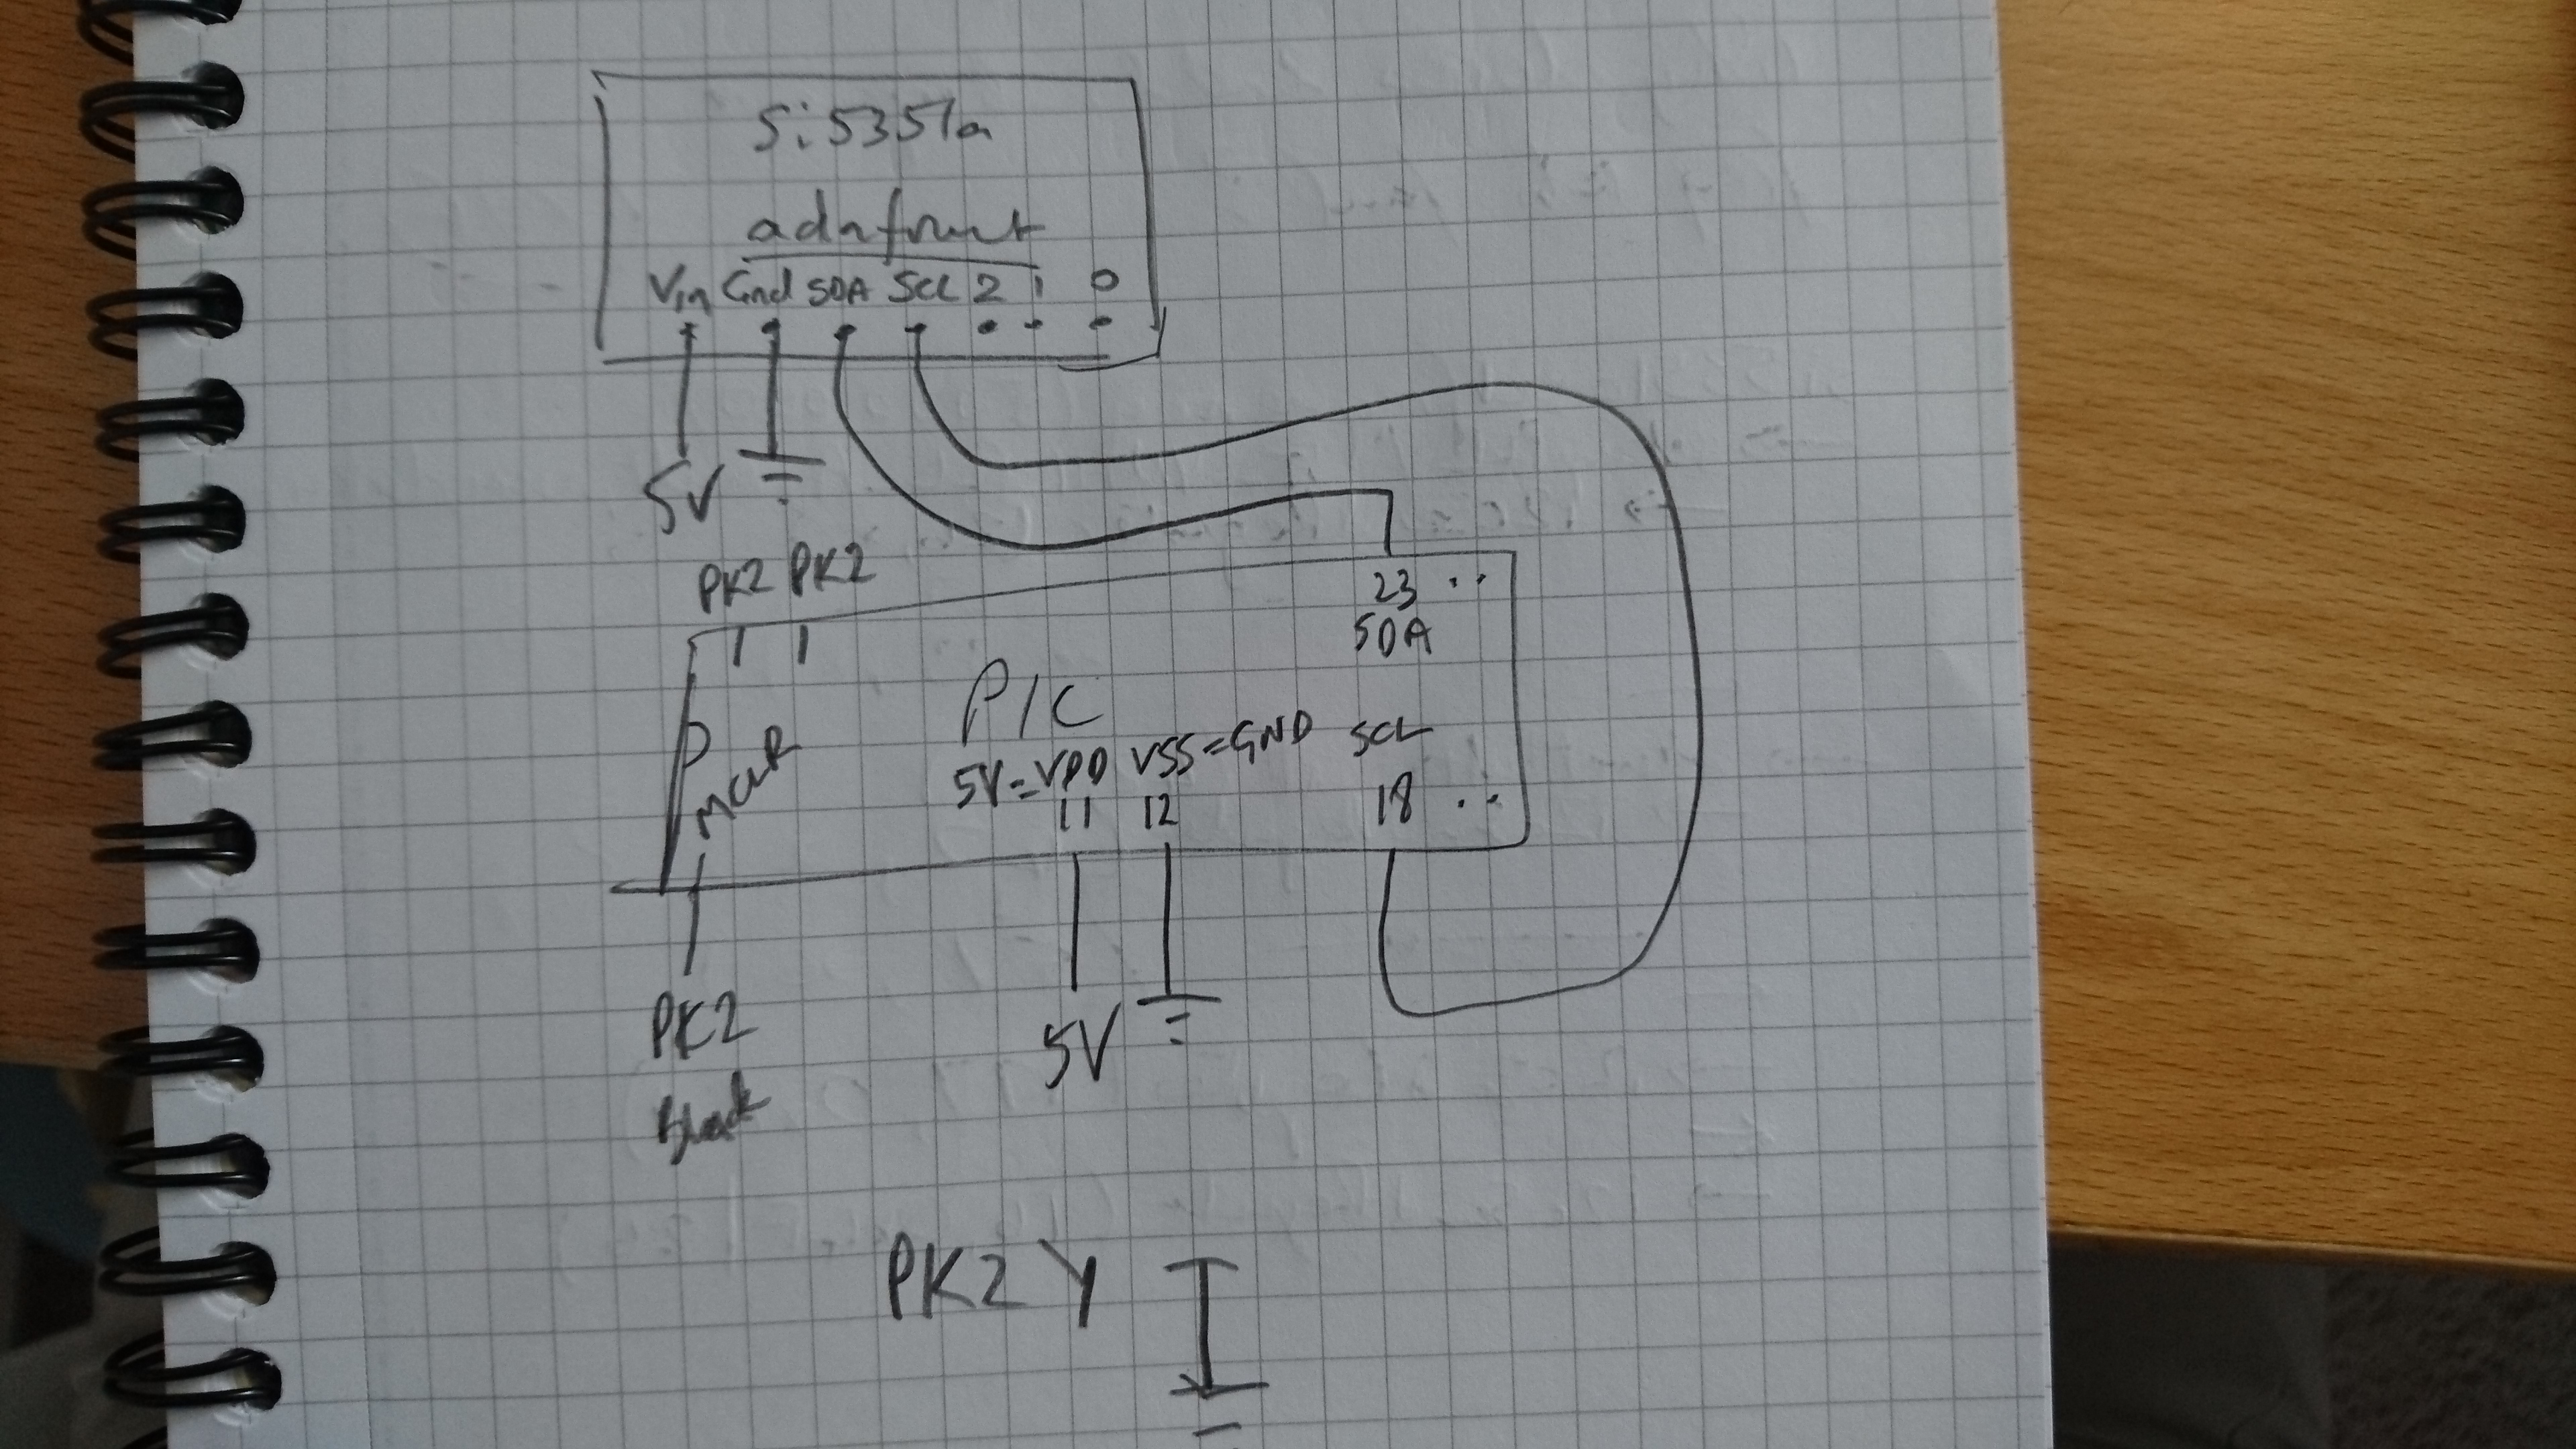 Si5351a
adafruit
Vin Gnd SDA SCL 2 1 0
5V
PK2 PK2
23 ..
SDA
PIC
MCLR
5V=VDD VSS=GND SCL
11 12 18 ..
PK2
Black
5V
PK2 Y